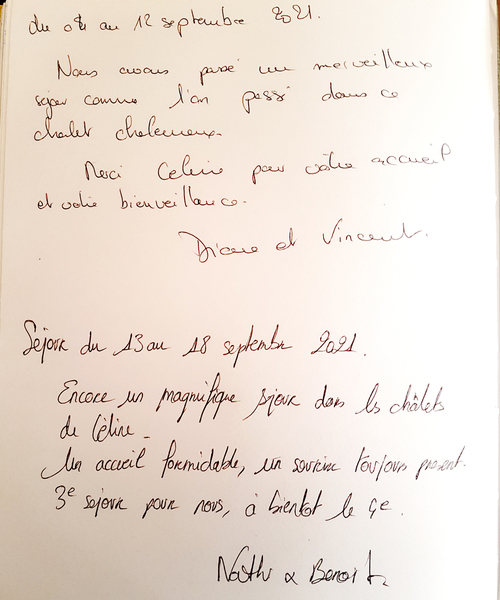 du 08 au 12 septembre 2021.
Nous avons passé un merveilleux
séjour comme l'an passé dans ce
chalet chaleureux.
Merci Celine pour votre accueil
et votre bienveillance.
Diane et Vincent.
Séjour du 13 au 18 septembre 2021.
Encore un magnifique séjour dans les châlets
de Céline.
Un accueil formidable, un sourire toujours présent.
3e séjour pour nous, à bientôt le 4e.
Nath & Benoit